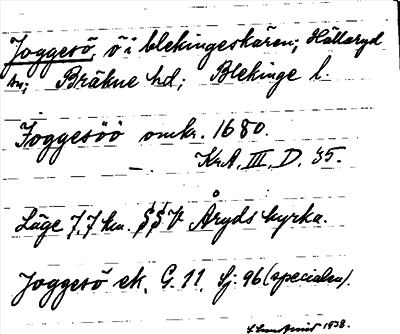 Joggesö, ö i blekingeskären; Hällaryd
sn; Bräkne hd; Blekinge l.
Joggesöö omkr. 1680.
KrA. III. D. 35.
Läge 7,7 km. SSV Åryds kyrka.
Joggesö ek. G. 11. Sj: 96 (specialen).
1938.